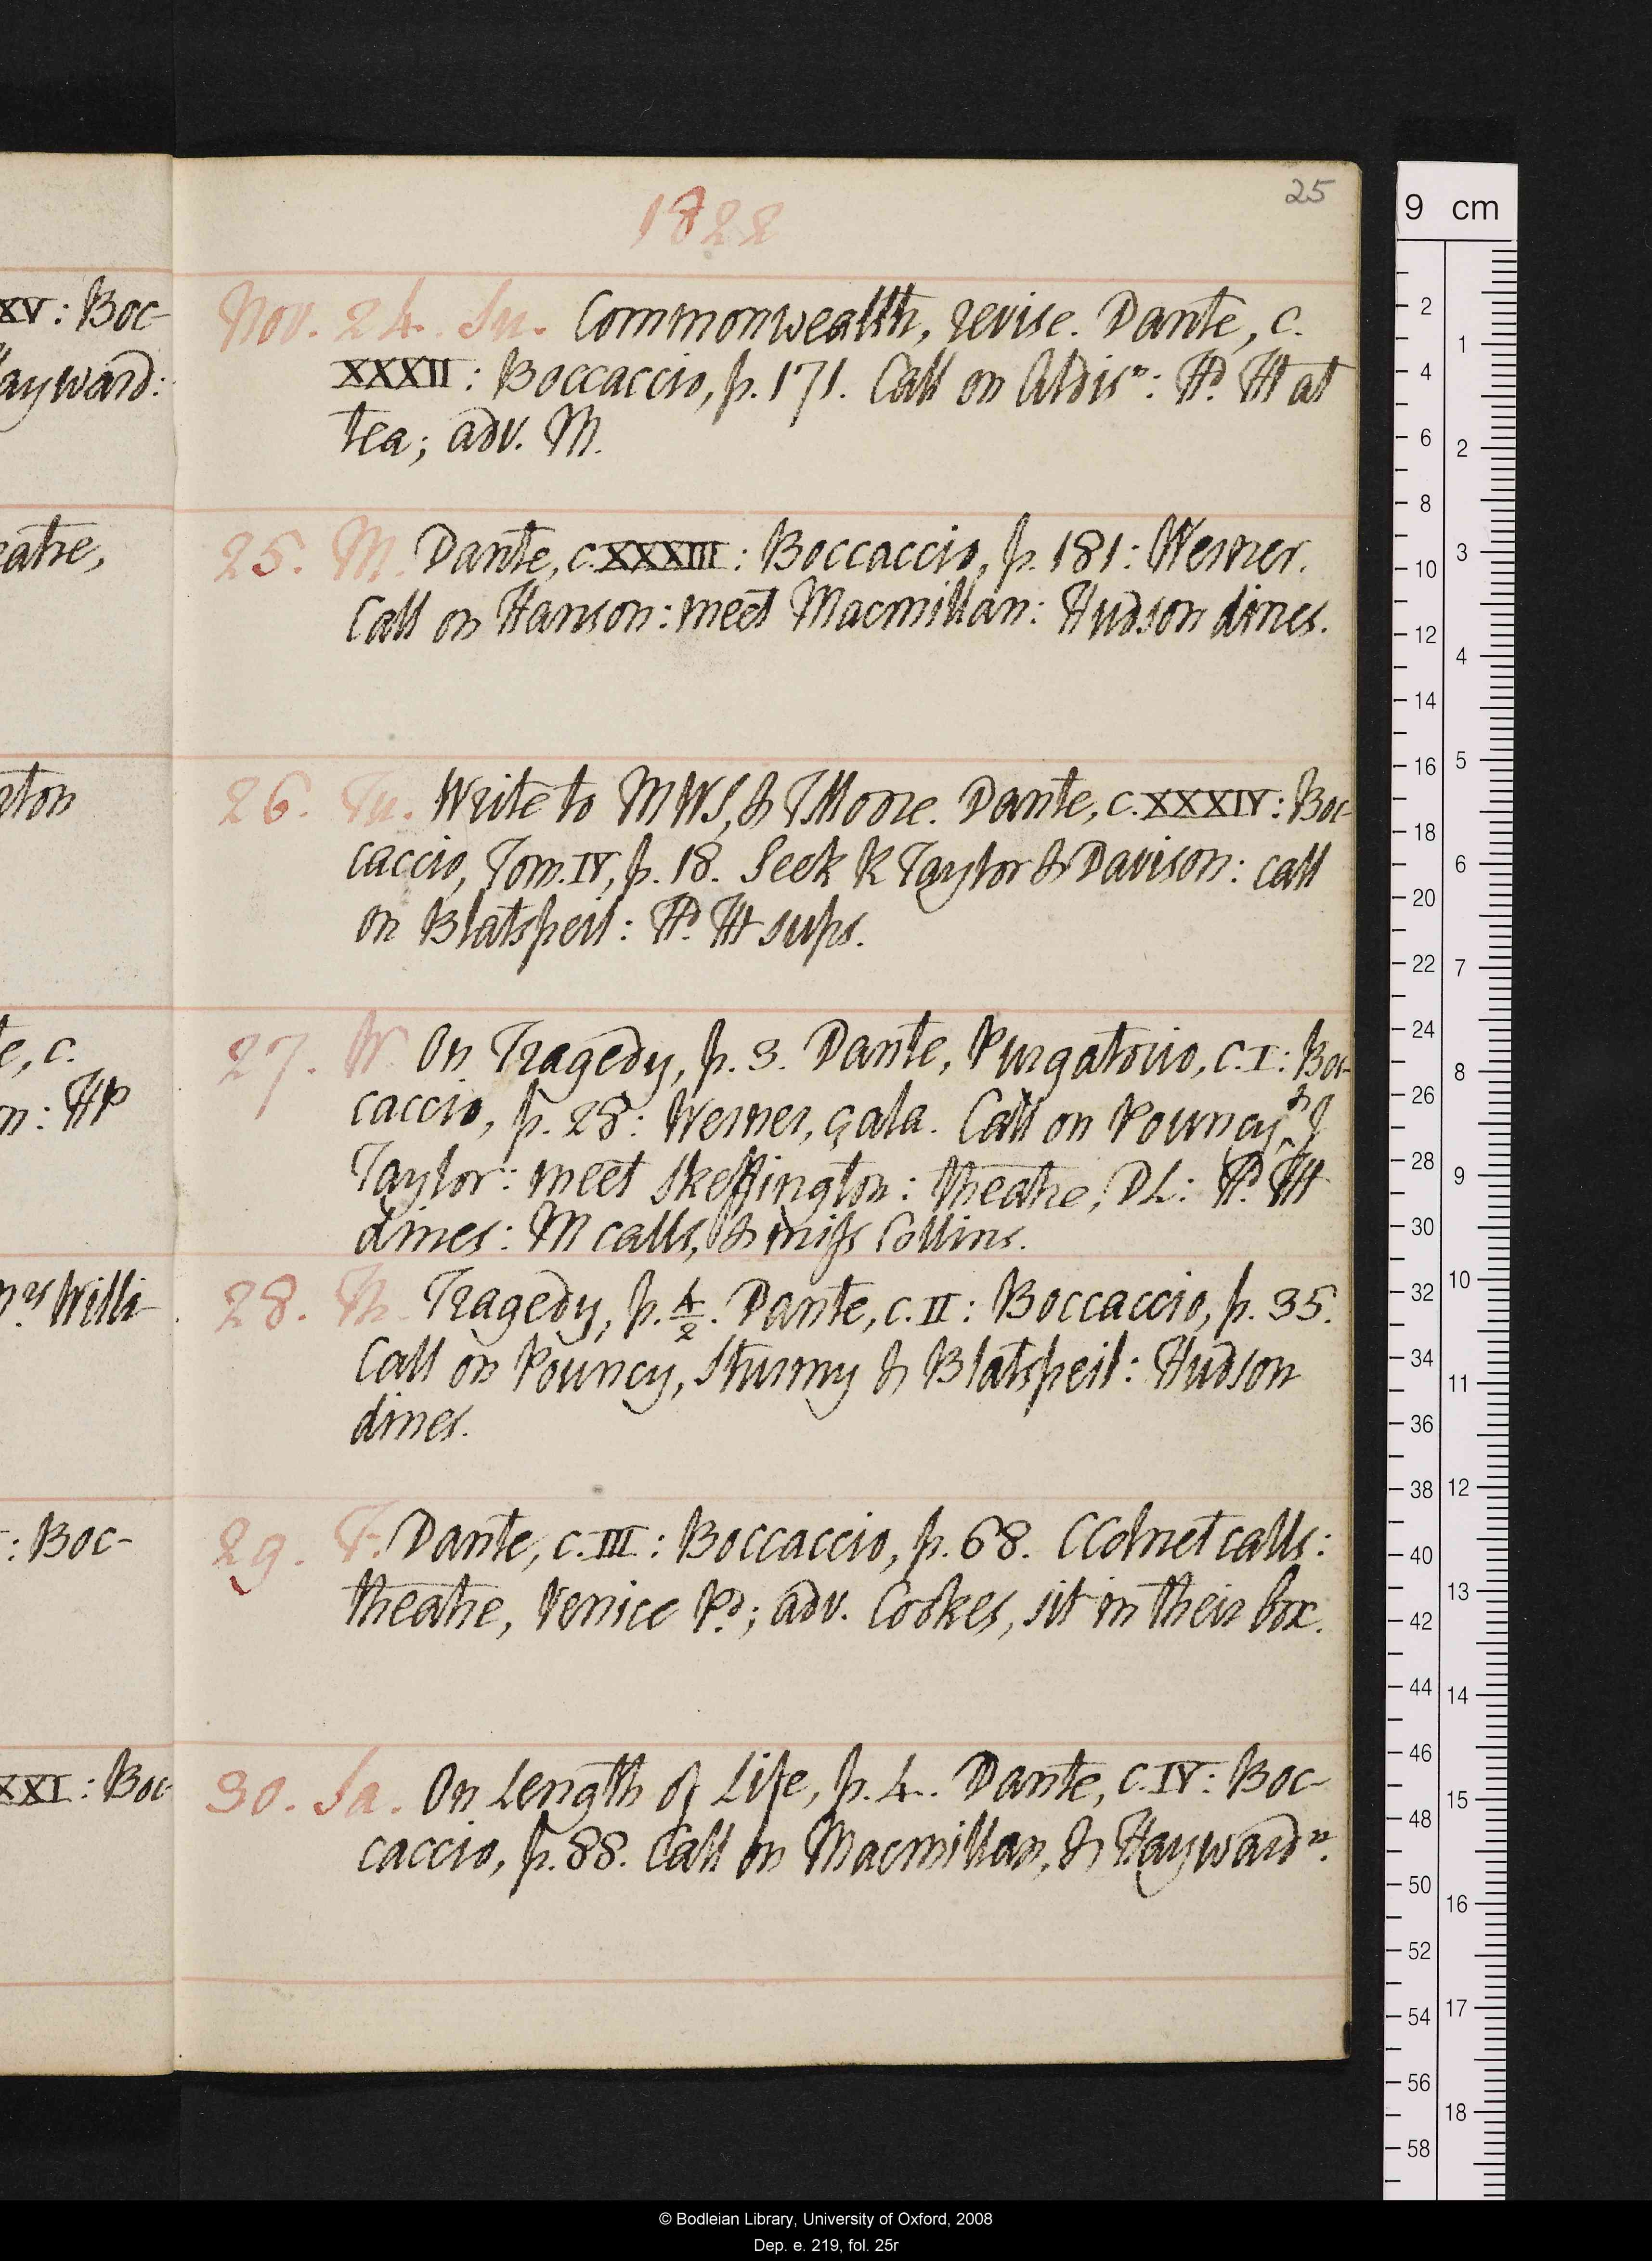 25
1822
XV: Boc-
ayward:
eatre,
rton
e, c.
n: HP
Willi-
: Boc-
XXI: Boc-
Nov. 24. Su. Commonwealth, revise. Dante, c.
XXXII: Boccaccio, p. 171. Call on Aldisⁿ: Hᵈ. Hᵗ at
tea; adv. M.
25. M. Dante, c. XXXIII: Boccaccio, p. 181: Werner.
Call on Hanson: meet Macmillan: Hudson dines.
26. Tu. Write to MWS, & TMoore. Dante, c. XXXIV: Boc-
caccio, Tom. IV, p. 18. Seek R Taylor & Davison: call
on Blatspeil: Hᵈ. Hᵗ sups.
27. W. On Tragedy, p. 3. Dante, Purgatorio, c. I: Boc-
caccio, p. 28: Werner, çala. Call on Pouncy, & J
Taylor: meet Skeffington: theatre, DL: Hᵈ. Hᵗ
dines: M calls, & miss Collins.
28. Th. Tragedy, p. 4/2. Dante, c. II: Boccaccio, p. 35.
Call on Pouncy, Sturmy & Blatspeil: Hudson
dines.
29. F. Dante, c. III: Boccaccio, p. 68. CColnet calls:
theatre, Venice Pᵈ; adv. Cookes, sit in their box.
30. Sa. On Length of Life, p. 4. Dante, c. IV: Boc-
caccio, p. 88. Call on Macmillan, & Haywardⁿ.
9 cm
2
4
6
8
10
12
14
16
18
20
22
24
26
28
30
32
34
36
38
40
42
44
46
48
50
52
54
56
58
1
2
3
4
5
6
7
8
9
10
11
12
13
14
15
16
17
18
© Bodleian Library, University of Oxford, 2008
Dep. e. 219, fol. 25r